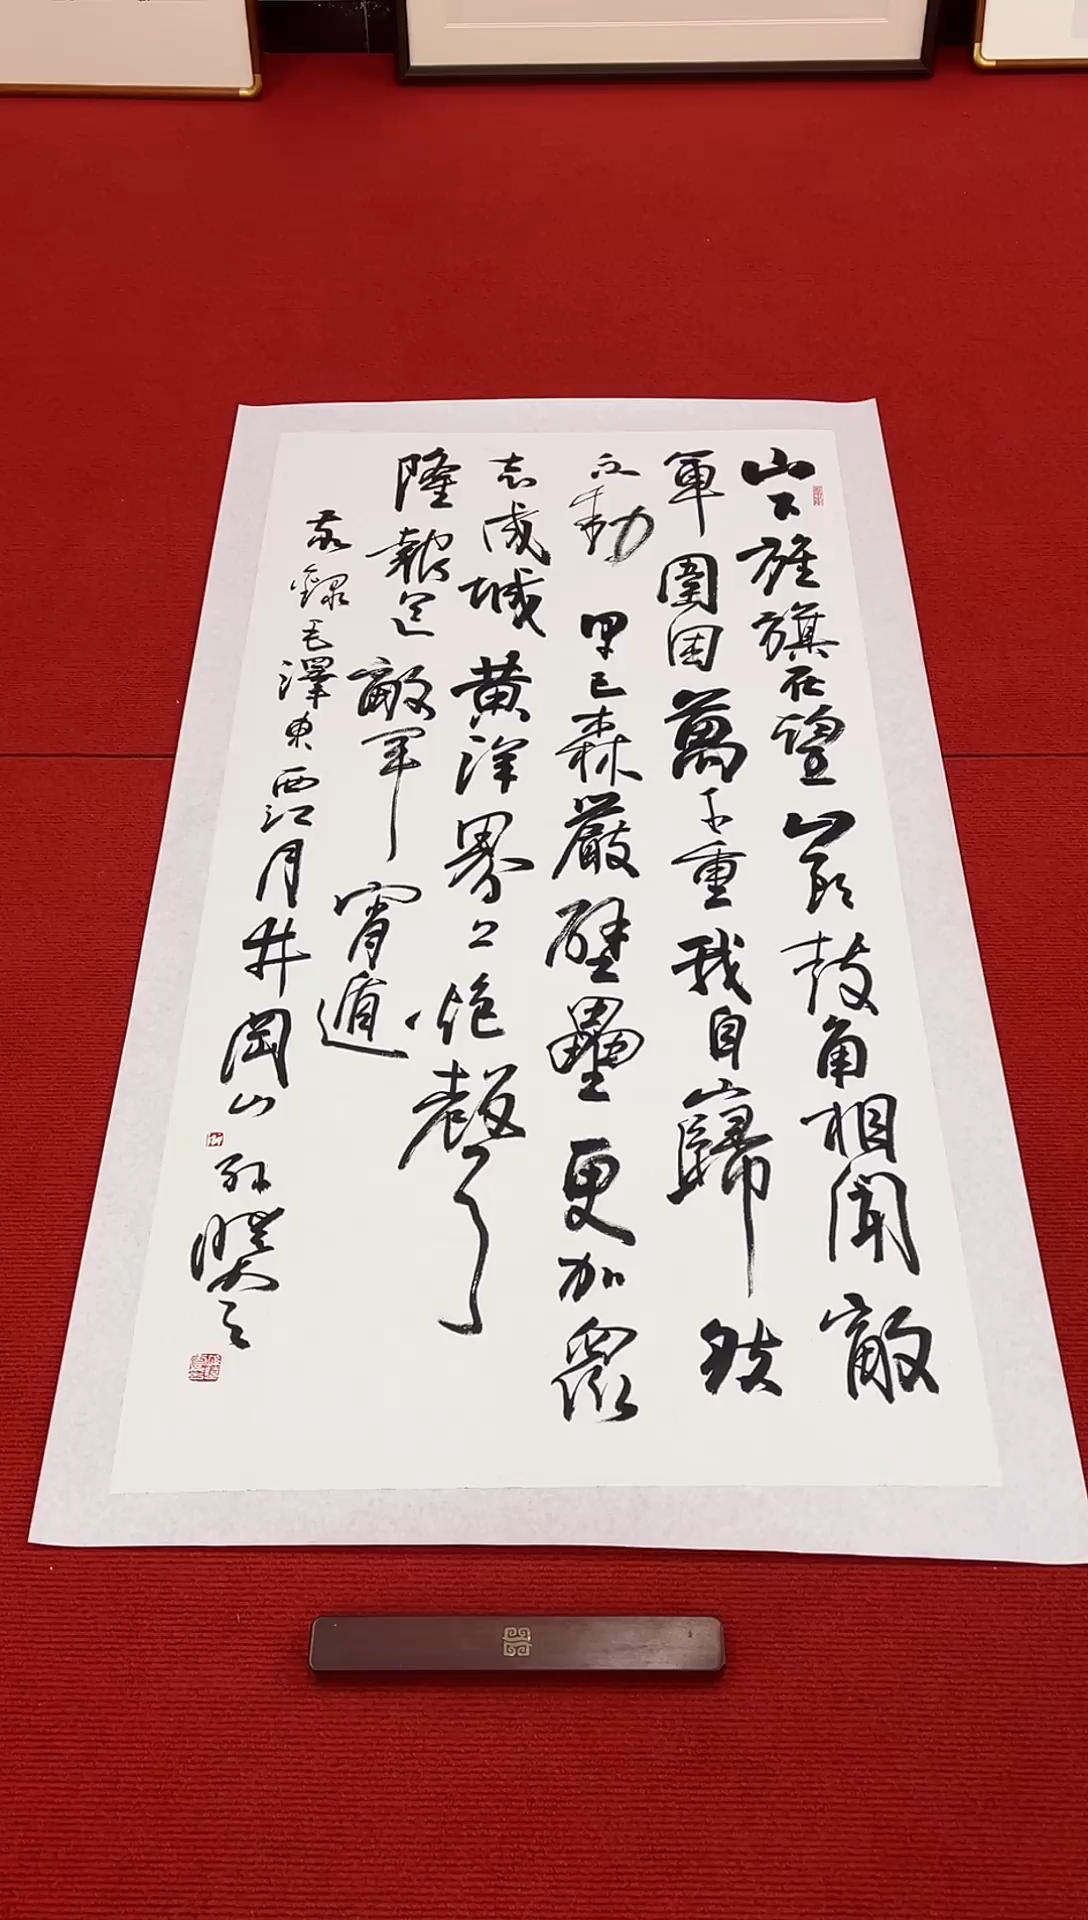 山下旌旗在望山頭鼓角相聞敵
軍圍困萬千重我自巋然
不動早已森嚴壁壘更加眾
志成城黄洋界上炮聲
隆報道敵軍宵遁
敬錄毛澤東西江月井岡山孫曉雲